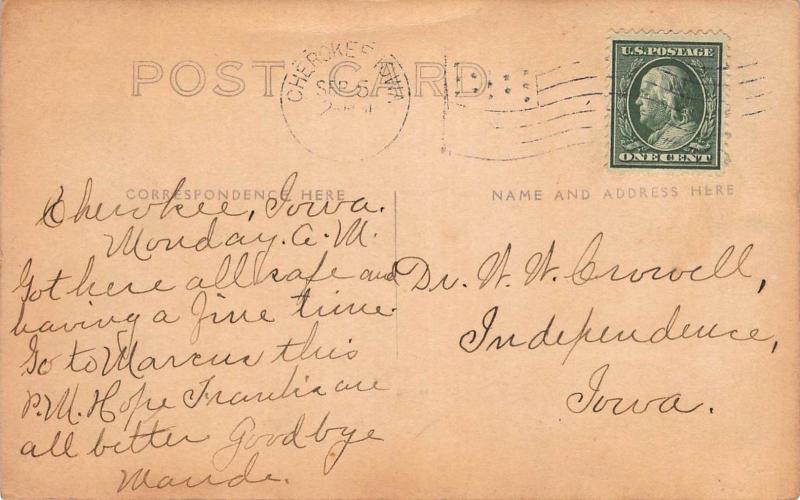 POST CARD
CHEROKEE IOWA
SEP 5
U.S. POSTAGE
ONE CENT
CORRESPONDENCE HERE
NAME AND ADDRESS HERE
Cherokee, Iowa.
Monday. A. M.
Got here all safe and
having a fine time.
Go to Marcus this
P. M. Hope are
all better Goodbye
Maude.
Dr. W. W. Crowell,
Independence,
Iowa.